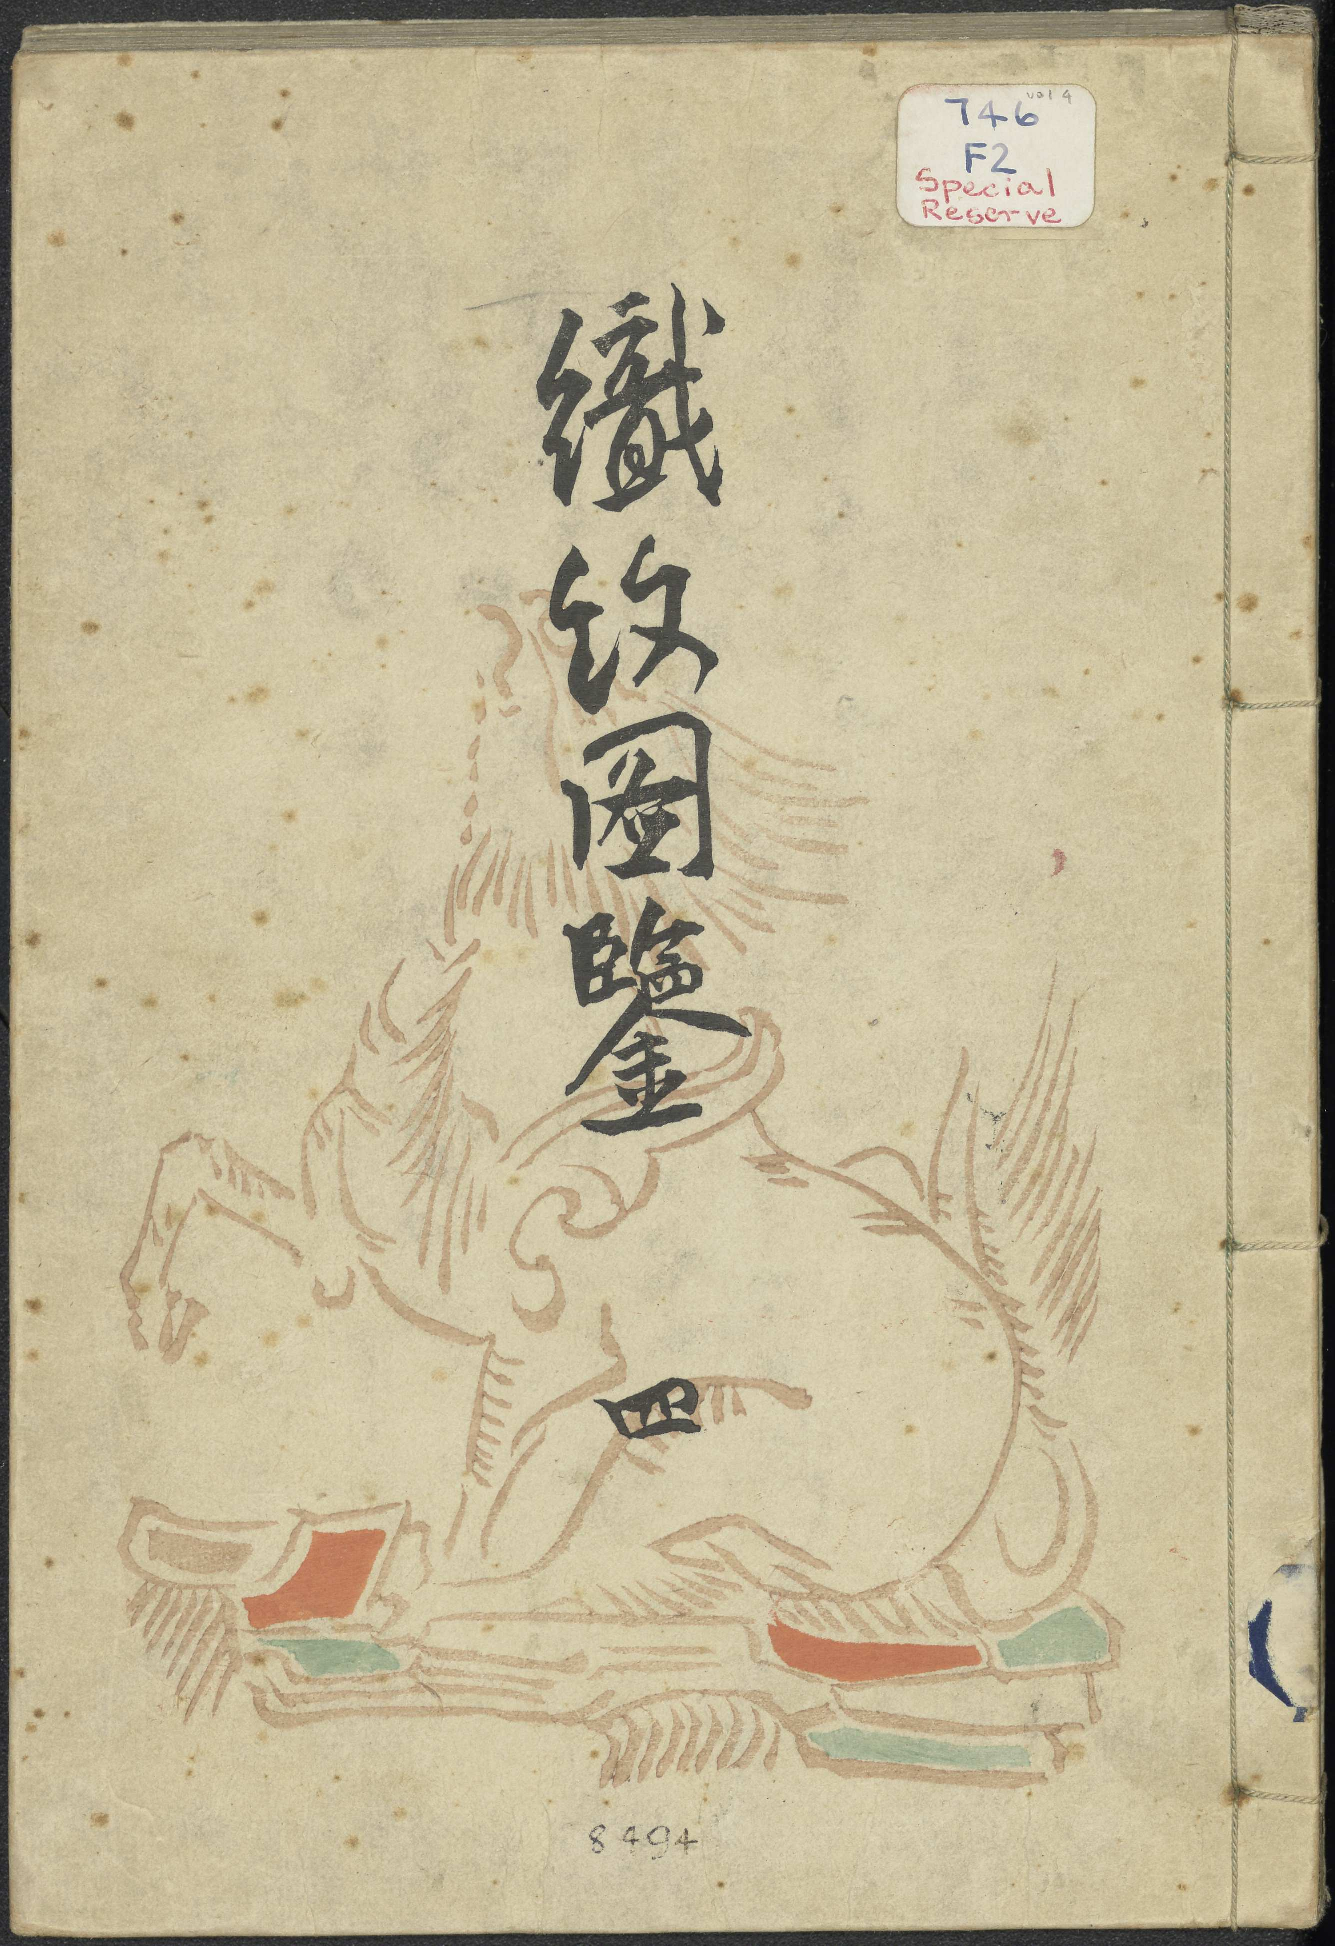 vol 4
746
F2
Special
Reserve
織紋圖鑒
四
8494